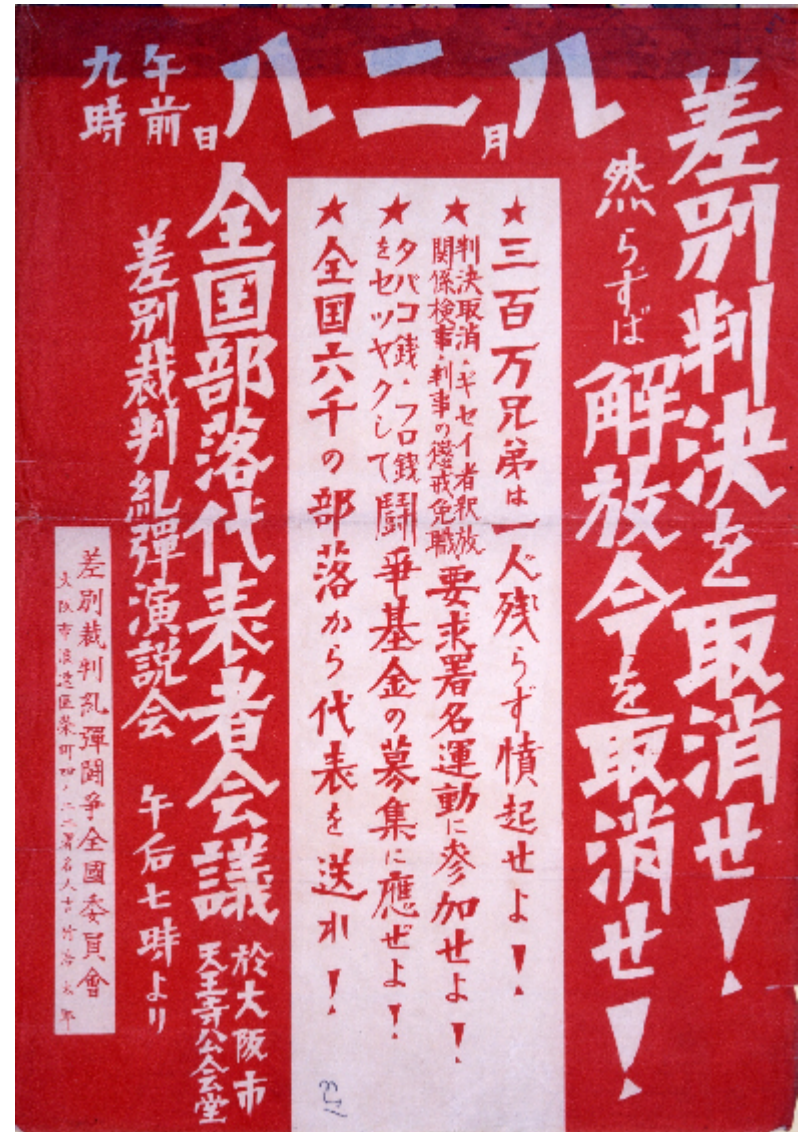 差別判決を取消せ！
然らずば解放令を取消せ！
八月二八日
午前
九時
★三百万兄弟は一人残らず憤起せよ！
★判決取消・ギセイ者釈放
関係検事・判事の懲戒免職
要求署名運動に参加せよ！
★タバコ銭・フロ銭
をセツヤクして
鬪爭基金の募集に應ぜよ！
★全国六千の部落から代表を送れ！
全国部落代表者会議
於大阪市
天王寺公会堂
差別裁判糺彈演説会 午后七時より
差別裁判糺彈鬪爭全國委員會
大阪市浪速區栄町四ノ二二署名人吉竹浩太郎